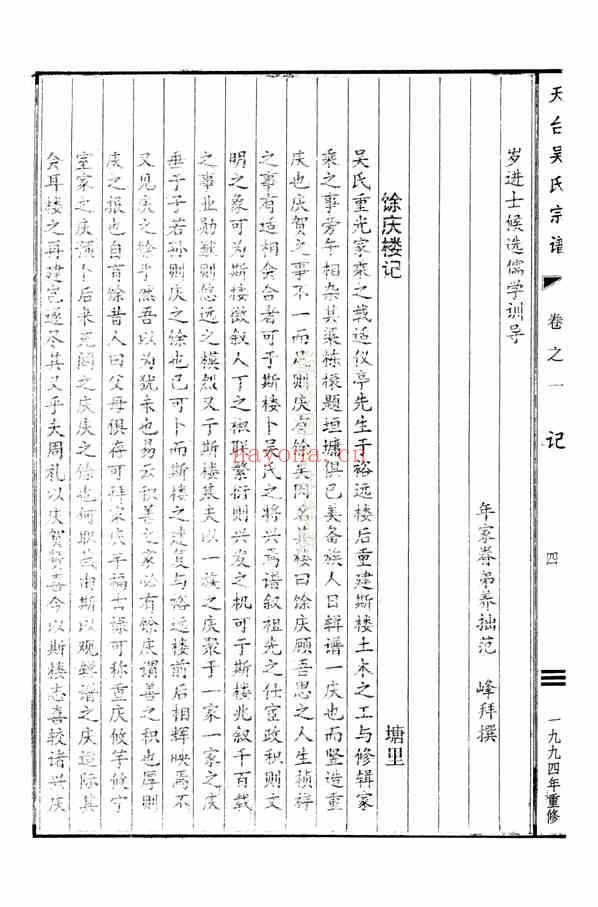 天台吴氏宗谱
卷之一
记
四
一九九四年重修
岁进士候选儒学训导
年家眷弟养拙范 峰拜撰
馀庆楼记 塘里
吴氏重光家乘之载适仪亭先生于裕远楼后重建斯楼土木之工与修辑家
乘之事旁午相杂其梁栋榱题垣墉俱已美备族人曰辑谱一庆也而竖造重
庆也庆贺之事不一而足则庆有馀矣因名其楼曰馀庆顾吾思之人生祯祥
之事有适相会合者可于斯楼卜吴氏之将兴焉谱叙祖先之仕宦政积则文
明之象可为斯楼征叙人丁之椒联繁衍则兴发之机可于斯楼兆叙千百载
之事业勋猷则悠远之模烈又于斯楼基夫以一族之庆聚于一家一家之庆
垂于子若孙则庆之馀也已可卜而斯楼之建复与裕远楼前后相辉映焉不
又见庆之馀乎然吾以为犹未也易云积善之家必有馀庆谓善之积也厚则
庆之报也自有馀昔人曰父母俱存可拜家庆平福士谟可称重庆攸芋攸宁
室家之庆预卜后来充闾之庆庆之馀也何职兰由斯以观辑谱之庆适际其
会耳楼之再建岂遂尽其又乎夫周礼以庆贺贺喜今以斯楼志喜较诸兴庆
nayona.cn